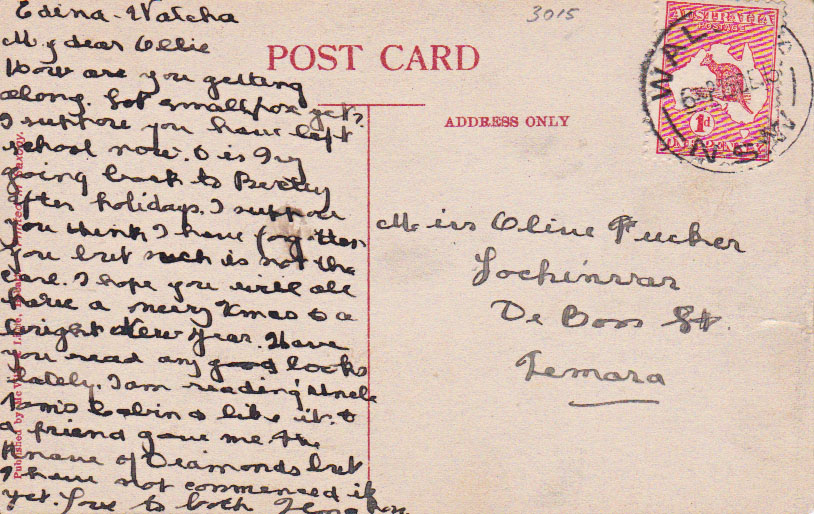 Edina - Walcha
My dear Ollie
How are you getting
along. Got smallpox yet?
I suppose you have left
school now. O is Ivy
going back to
after holidays. I suppose
you think I have forgotten
you but such is not the
case. I hope you will all
have a merry Xmas & a
bright New Year. Have
you read any good books
lately. I am reading Uncle
Tom's Cabin & like it. &
a friend gave me the
Knave of Diamonds but
I have not commenced it
yet. Love to both
3015
POST CARD
ADDRESS ONLY
AUSTRALIA
POSTAGE
1d
ONE PENNY
WAL
N.S.W
Miss Olive Tucker
Lochinvar
De Boos St.
Temora
Published by